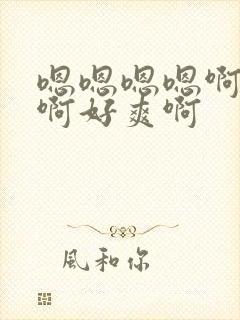 嗯嗯嗯嗯啊
啊好爽啊
風和你